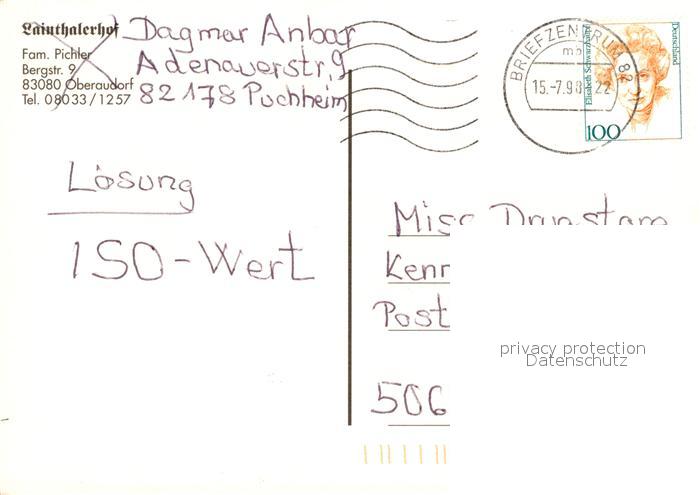 Lainthalerhof
Fam. Pichler
Bergstr. 9
83080 Oberaudorf
Tel. 08033/1257
Dagmar Anbar
Adenauerstr. 9
82178 Puchheim
BRIEFZENTRUM 82
mb
15.-7.98-22
Deutschland
Elisabeth Schwarzhaupt
100
Lösung
ISO-Wert
Miss
Kenr
Post
506
privacy protection
Datenschutz